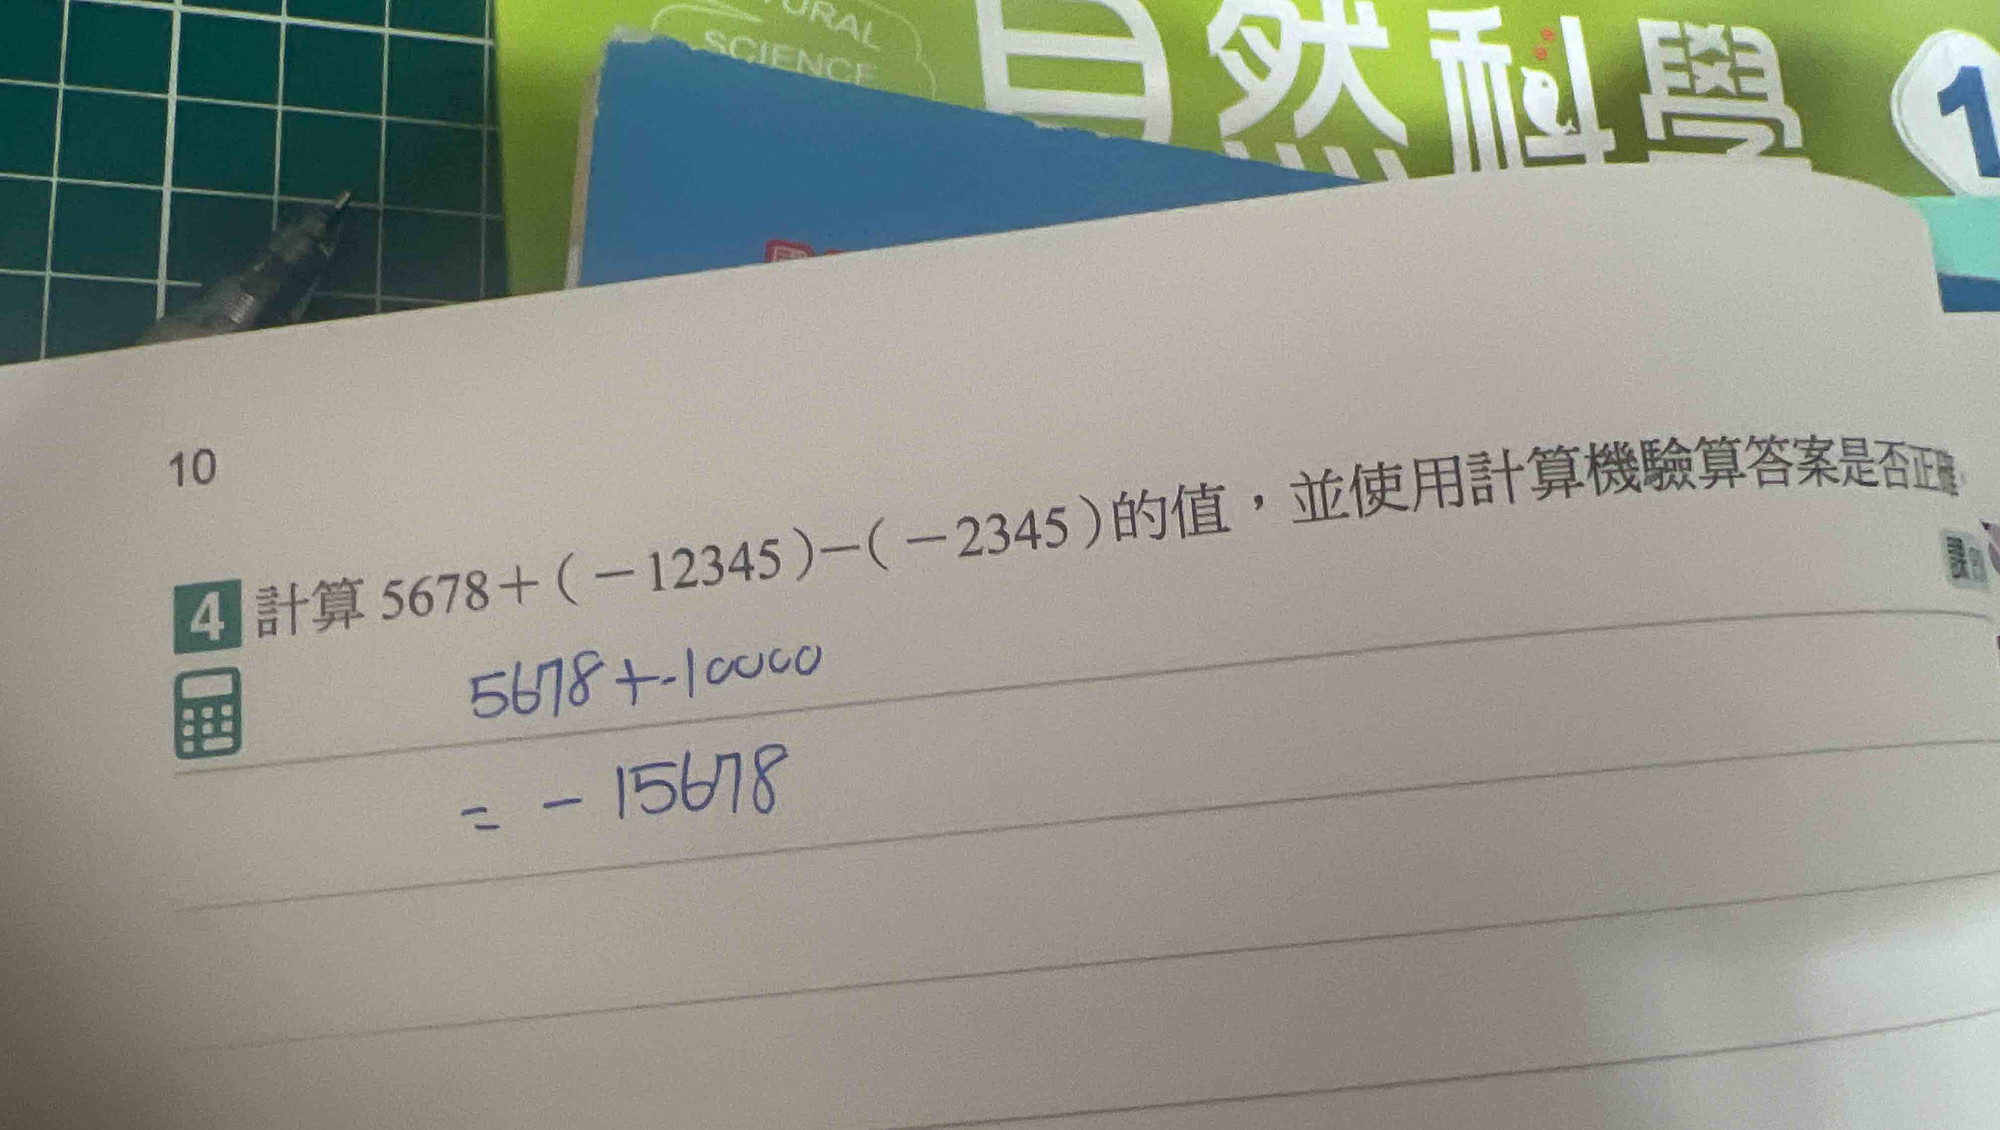 URAL
SCIENCE
自然科學
1
10
4 計算 5678+(-12345)-(-2345)的值,並使用計算機驗算答案是否正確
5678+-10000
= - 15678